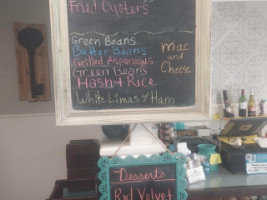 Fried Oysters
Green Beans
Butter Beans
Grilled Asparagus
Green Beans
Hash & Rice
White Limas & Ham
Mac
and
Cheese
Desserts
Red Velvet